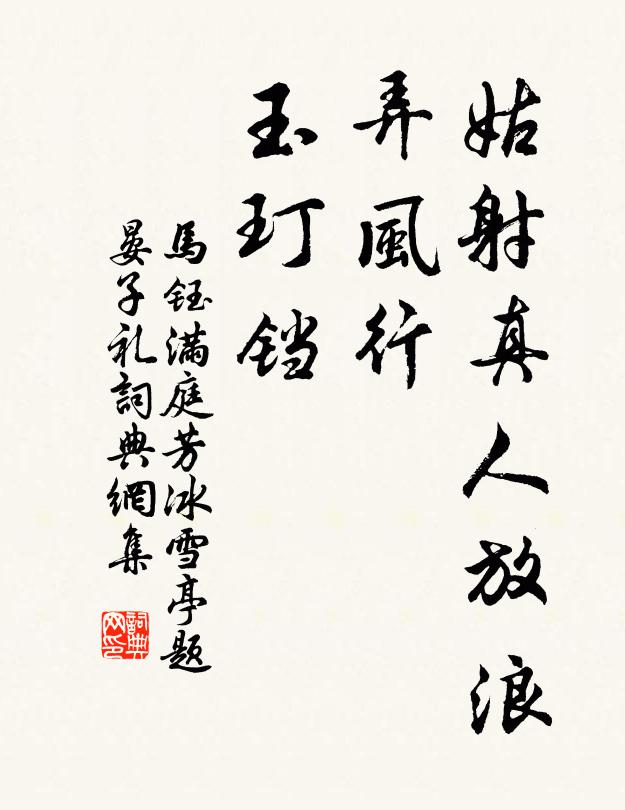 姑射真人放浪
弄風行
玉玎铛
馬鈺满庭芳冰雪亭题
晏子礼詞典網集
詞典网印